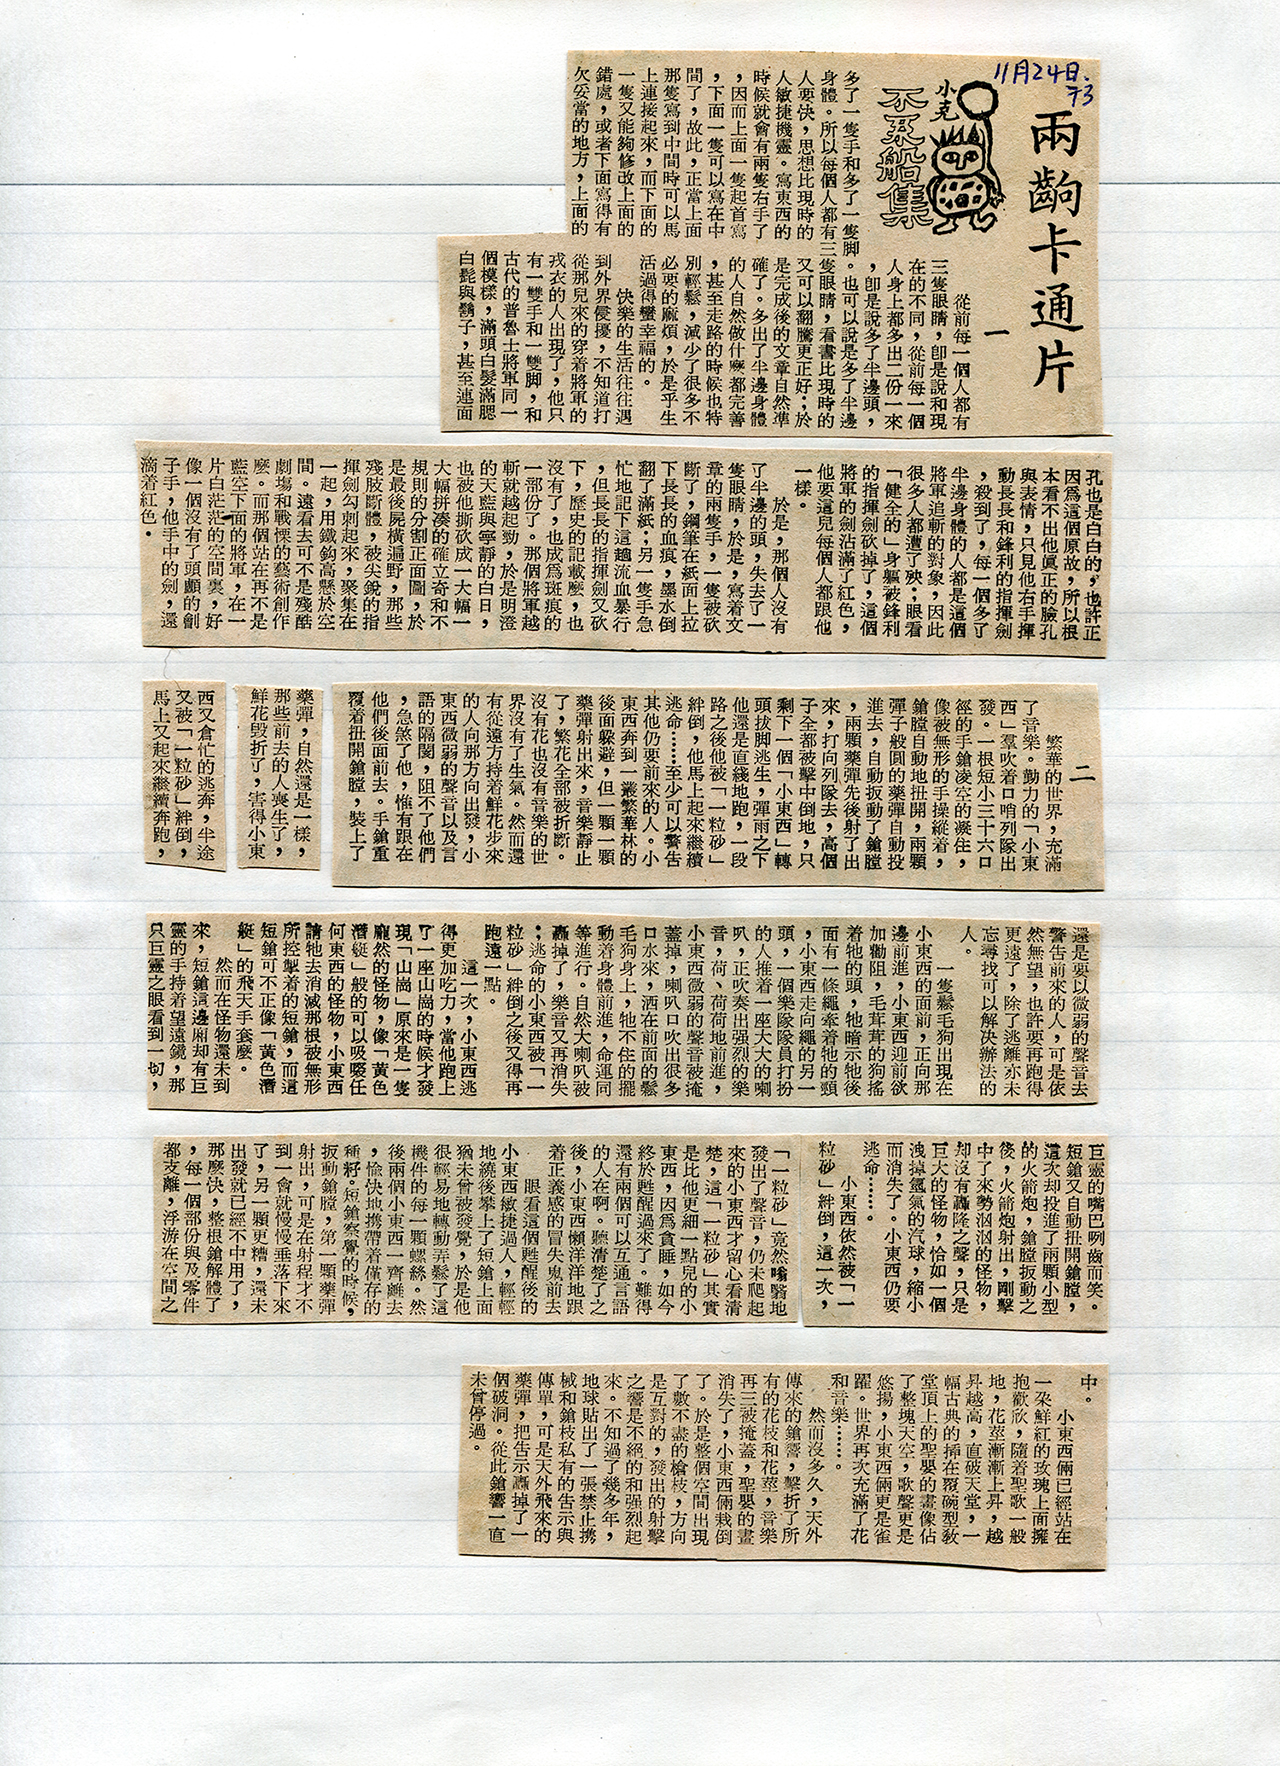 11月24日.
73
兩齣卡通片
小克
不系船集
一
從前每一個人都有
三隻眼睛，卽是說和現
在的不同，從前每一個
人身上都多出二份一來
，卽是說多了半邊頭，
多了一隻手和多了一隻脚。也可以說是多了半邊
身體。所以每個人都有三隻眼睛，看書比現時的
人要快，思想比現時的又可以翻騰更正好；於
人敏捷機靈。寫東西的是完成後的文章自然準
時候就會有兩隻右手了確了。多出了半邊身體
，因而上面一隻起首寫的人自然做什麽都完善
，下面一隻可以寫在中，甚至走路的時候也特
間了，故此，正當上面別輕鬆，減少了很多不
那隻寫到中間時可以馬必要的麻煩，於是乎生
上連接起來，而下面的活過得蠻幸福的。
一隻又能夠修改上面的快樂的生活往往遇
錯處，或者下面寫得有到外界侵擾，不知道打
欠妥當的地方，上面的從那兒來的穿着將軍的
戎衣的人出現了，他只
有一雙手和一雙脚，和
古代的普魯士將軍同一
個模樣，滿頭白髮滿腮
白髭與鬍子，甚至連面
孔也是白白的，也許正
因爲這個原故，所以根
本看不出他眞正的臉孔
與表情，只見他右手揮
動長長和鋒利的指揮劍
，殺到了，每一個多了
半邊身體的人都是這個
將軍追斬的對象，因此
很多人都遭了殃；眼看
「健全的」身軀被鋒利
的指揮劍砍掉了，這個
將軍的劍沾滿了紅色，
他要這兒每個人都跟他
一樣。
於是，那個人沒有
了半邊的頭，失去了一
隻眼睛，於是，寫着文
章的兩隻手，一隻被砍
斷了，鋼筆在紙面上拉
下長長的血痕，墨水倒
翻了滿紙；另一隻手急
忙地記下這趟流血暴行
，但長長的指揮劍又砍
下，歷史的記載麽，也
沒有了，也成爲斑痕的
一部份了。那個將軍越
斬就越起勁，於是明澄
的天藍與寧靜的白日，
也被他撕砍成一大幅一
大幅拼凑的確立奇和不
規則的分割正面圖，於
是最後屍橫遍野，那些
殘肢斷體，被尖銳的指
揮劍勾刺起來，聚集在
一起，用鐵鈎高懸於空
間。遠看去可不是殘酷
劇塲和戰慄的藝術創作
麽。而那個站在再不是
藍空下面的將軍，在一
片白茫茫的空間裏，好
像一個沒有了頭顱的劊
子手，他手中的劍，還
滴着紅色。
二
繁華的世界，充滿
了音樂。勤力的「小東
西」羣吹着口哨列隊出
發。一根短小三十六口
徑的手鎗凌空的凝住，
像被無形的手操縱着，
鎗膛自動地扭開，兩顆
彈子般圓的藥彈自動投
進去，自動扳動了鎗膛
，兩顆藥彈先後射了出
來，打向列隊去，高個
子全都被擊中倒地，只
剩下一個「小東西」轉
頭拔脚逃生，彈雨之下
他還是直綫地跑，一段
路之後他被「一粒砂」
絆倒，他馬上起來繼續
逃命……至少可以警告
其他仍要前來的人。小
東西奔到一叢繁華林的
後面躲避，但一顆一顆
藥彈射出來，音樂靜止
了，繁花全部被折斷。
沒有花也沒有音樂的世
界沒有了生氣。然而還
有從遠方持着鮮花步來
的人向那方向出發，小
東西微弱的聲音以及言
語的隔閡，阻不了他們
，急煞了他，惟有跟在
他們後面前去。手鎗重
覆着扭開鎗膛，裝上了
藥彈，自然還是一樣，
那些前去的人喪生了，
鮮花毀折了，害得小東
西又倉忙的逃奔，半途
又被「一粒砂」絆倒，
馬上又起來繼續奔跑，
還是要以微弱的聲音去
警告前來的人，可是依
然無望，也許要再跑得
更遠了，除了逃離亦未
忘尋找可以解决辦法的
人。
一隻鬆毛狗出現在
小東西的面前，正向那
邊前進，小東西迎前欲
加勸阻，毛茸茸的狗搖
着牠的頭，牠暗示牠後
面有一條繩牽着牠的頸
，小東西走向繩的另一
頭，一個樂隊隊員打扮
的人推着一座大大的喇
叭，正吹奏出强烈的樂
音，荷、荷荷地前進，
小東西微弱的聲音被掩
蓋掉，喇叭口吹出很多
口水來，洒在前面的鬆
毛狗身上，牠不住的擺
動着身體前進，命運同
等進行。自然大喇叭被
轟掉了，樂音又再消失
；逃命的小東西被「一
粒砂」絆倒之後又得再
跑遠一點。
這一次，小東西逃
得更加吃力，當他跑上
了一座山崗的時候才發
現「山崗」原來是一隻
龐然的怪物，像「黃色
潛艇」般的可以吸嗋任
何東西的怪物，小東西
請牠去消滅那根被無形
所控掣着的短鎗，而這
短鎗可不正像「黃色潛
艇」的飛天手套麽。
然而在怪物還未到
來，短鎗這邊厢却有巨
靈的手持着望遠鏡，那
只巨靈之眼看到一切，
巨靈的嘴巴咧齒而笑。
短鎗又自動扭開鎗膛，
這次却投進了兩顆小型
的火箭炮，鎗膛扳動之
後，火箭炮射出，剛擊
中了來勢汹汹的怪物，
却沒有轟隆之聲，只是
巨大的怪物，恰如一個
洩掉氫氣的汽球，縮小
而消失了。小東西仍要
逃命……。
小東西依然被「一
粒砂」絆倒，這一次，
「一粒砂」竟然嗡翳地
發出了聲音，仍未爬起
來的小東西才留心看清
楚，這「一粒砂」其實
是比他更細一點兒的小
東西，因爲貪睡，如今
終於甦醒過來了。難得
還有兩個可以互通言語
的人在啊。聽清楚了之
後，小東西懶洋洋地跟
着正義感的冒失鬼前去
。
眼看這個甦醒後的
小東西敏捷過人，輕輕
地繞後攀上了短鎗上面
猶未曾被發覺，於是他
很輕易地轉動弄鬆了這
機件的每一顆螺絲。然
後兩個小東西一齊離去
，愉快地携帶着僅存的
種籽。短鎗察覺的時候，
扳動鎗膛，第一顆藥彈
射出，可是在射程才不
到一會就慢慢垂落下來
了，另一顆更糟，還未
出發就已經不中用了，
那麽快，整根鎗解體了
，每一個部份與及零件
都支離，浮游在空間之
中。
小東西倆已經站在
一朶鮮紅的玫瑰上面擁
抱歡欣，隨着聖歌一般
地，花莖漸漸上昇，越
昇越高，直破天堂，一
幅古典的揷在覆碗型敎
堂頂上的聖嬰的畫像佔
了整塊天空，歌聲更是
悠揚，小東西倆更是雀
躍。世界再次充滿了花
和音樂……。
然而沒多久，天外
傳來的鎗響，擊折了所
有的花枝和花莖，音樂
再三被掩蓋，聖嬰的畫
消失了，小東西倆栽倒
了。於是整個空間出現
了數不盡的槍枝，方向
是互對的，發出的射擊
之響是不絕的和强烈起
來。不知過了幾多年，
地球貼出了一張禁止携
械和鎗枝私有的告示與
傳單，可是天外飛來的
藥彈，把告示轟掉了一
個破洞。從此鎗響一直
未曾停過。